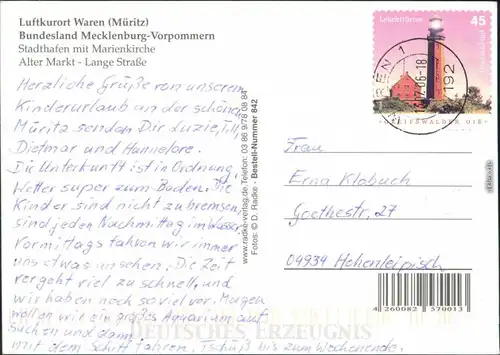 Luftkurort Waren (Müritz)
Bundesland Mecklenburg-Vorpommern
Stadthafen mit Marienkirche
Alter Markt - Lange Straße
Herzliche Grüße von unseren
Kinderurlaub an der schönen
Müritz senden Dir Luzie, Lilli,
Dietmar und Hannelore.
Die Unterkunft ist in Ordnung,
Wetter super zum Baden. Die
Kinder sind nicht zu bremsen,
sind jeden Nachmittag im Wasser
Vormittags fahren wir immer
uns etwas ansehen. Die Zeit
vergeht viel zu schnell, und
wir haben noch so viel vor. Morgen
wollen wir ein großes Aquarium auf
suchen und dann
mit dem Schiff fahren. Tschüß bis zum Wochenende.
www.radke-verlag.de, Telefon: 03 86 9/78 08 84
Fotos: © D. Radke - Bestell-Nummer 842
Leuchttürme
45
GREIFSWALDER OIE
WAREN 1
06-18
192
Frau
Erna Klobuch
Goethestr. 27
04934 Hohenleipisch
4 260082 570013
DEUTSCHES ERZEUGNIS